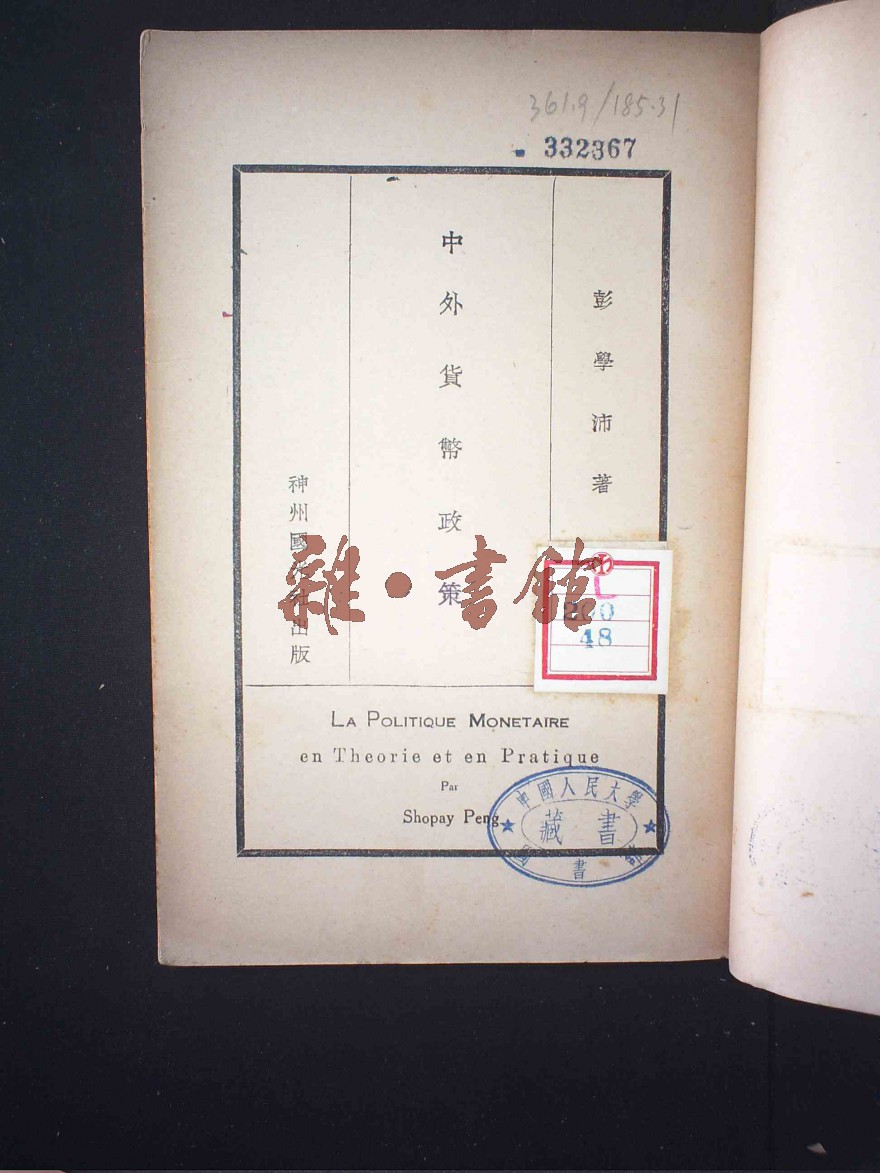 361.9/185.31
332367
彭學沛著
中外貨幣政策
神州國光社出版
雜·書館
L
200
48
LA POLITIQUE MONETAIRE
en Theorie et en Pratique
Par
Shopay Peng
中國人民大學
藏書
書